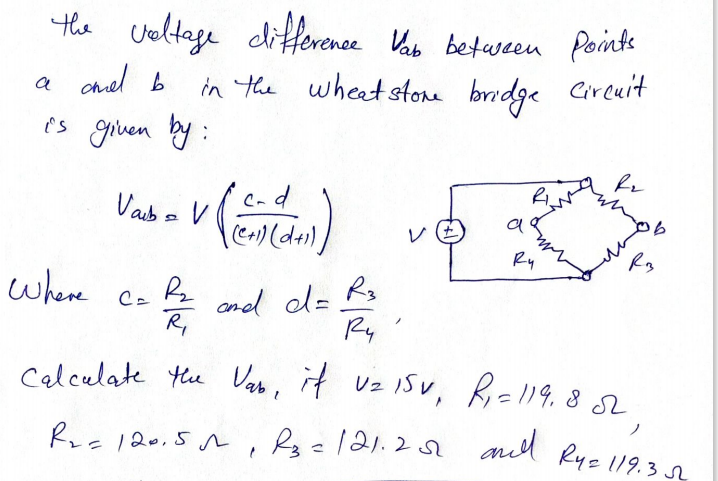 the voltage difference Vab between points
a and b in the wheatstone bridge circuit
is given by :
Vab = V ( c-d / (c+1)(d+1) )
R1 R2
V + a b
R4 R3
where c = R2/R1 and d = R3/R4 ,
Calculate the Vab, if V = 15V, R1 = 119.8 Ω ,
R2 = 120.5 Ω , R3 = 121.2 Ω and R4 = 119.3 Ω